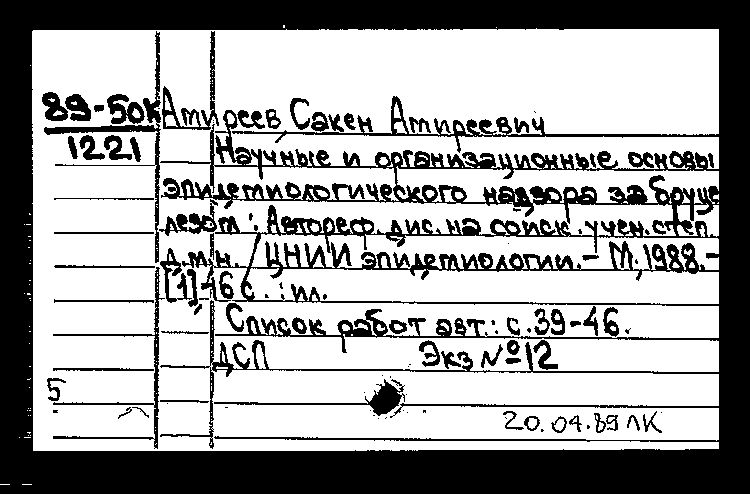 89-50к Амиреев Сакен Амиреевич
1221 Научные и организационные основы
эпидемиологического надзора за бруце
лезом : Автореф. дис. на соиск. учен. степ.
д.м.н. / ЦНИИ эпидемиологии. – М., 1988. –
[1]-46 с. : ил.
Список работ авт.: с. 39-46.
ДСП Экз №12
5
20.04.89 ЛК